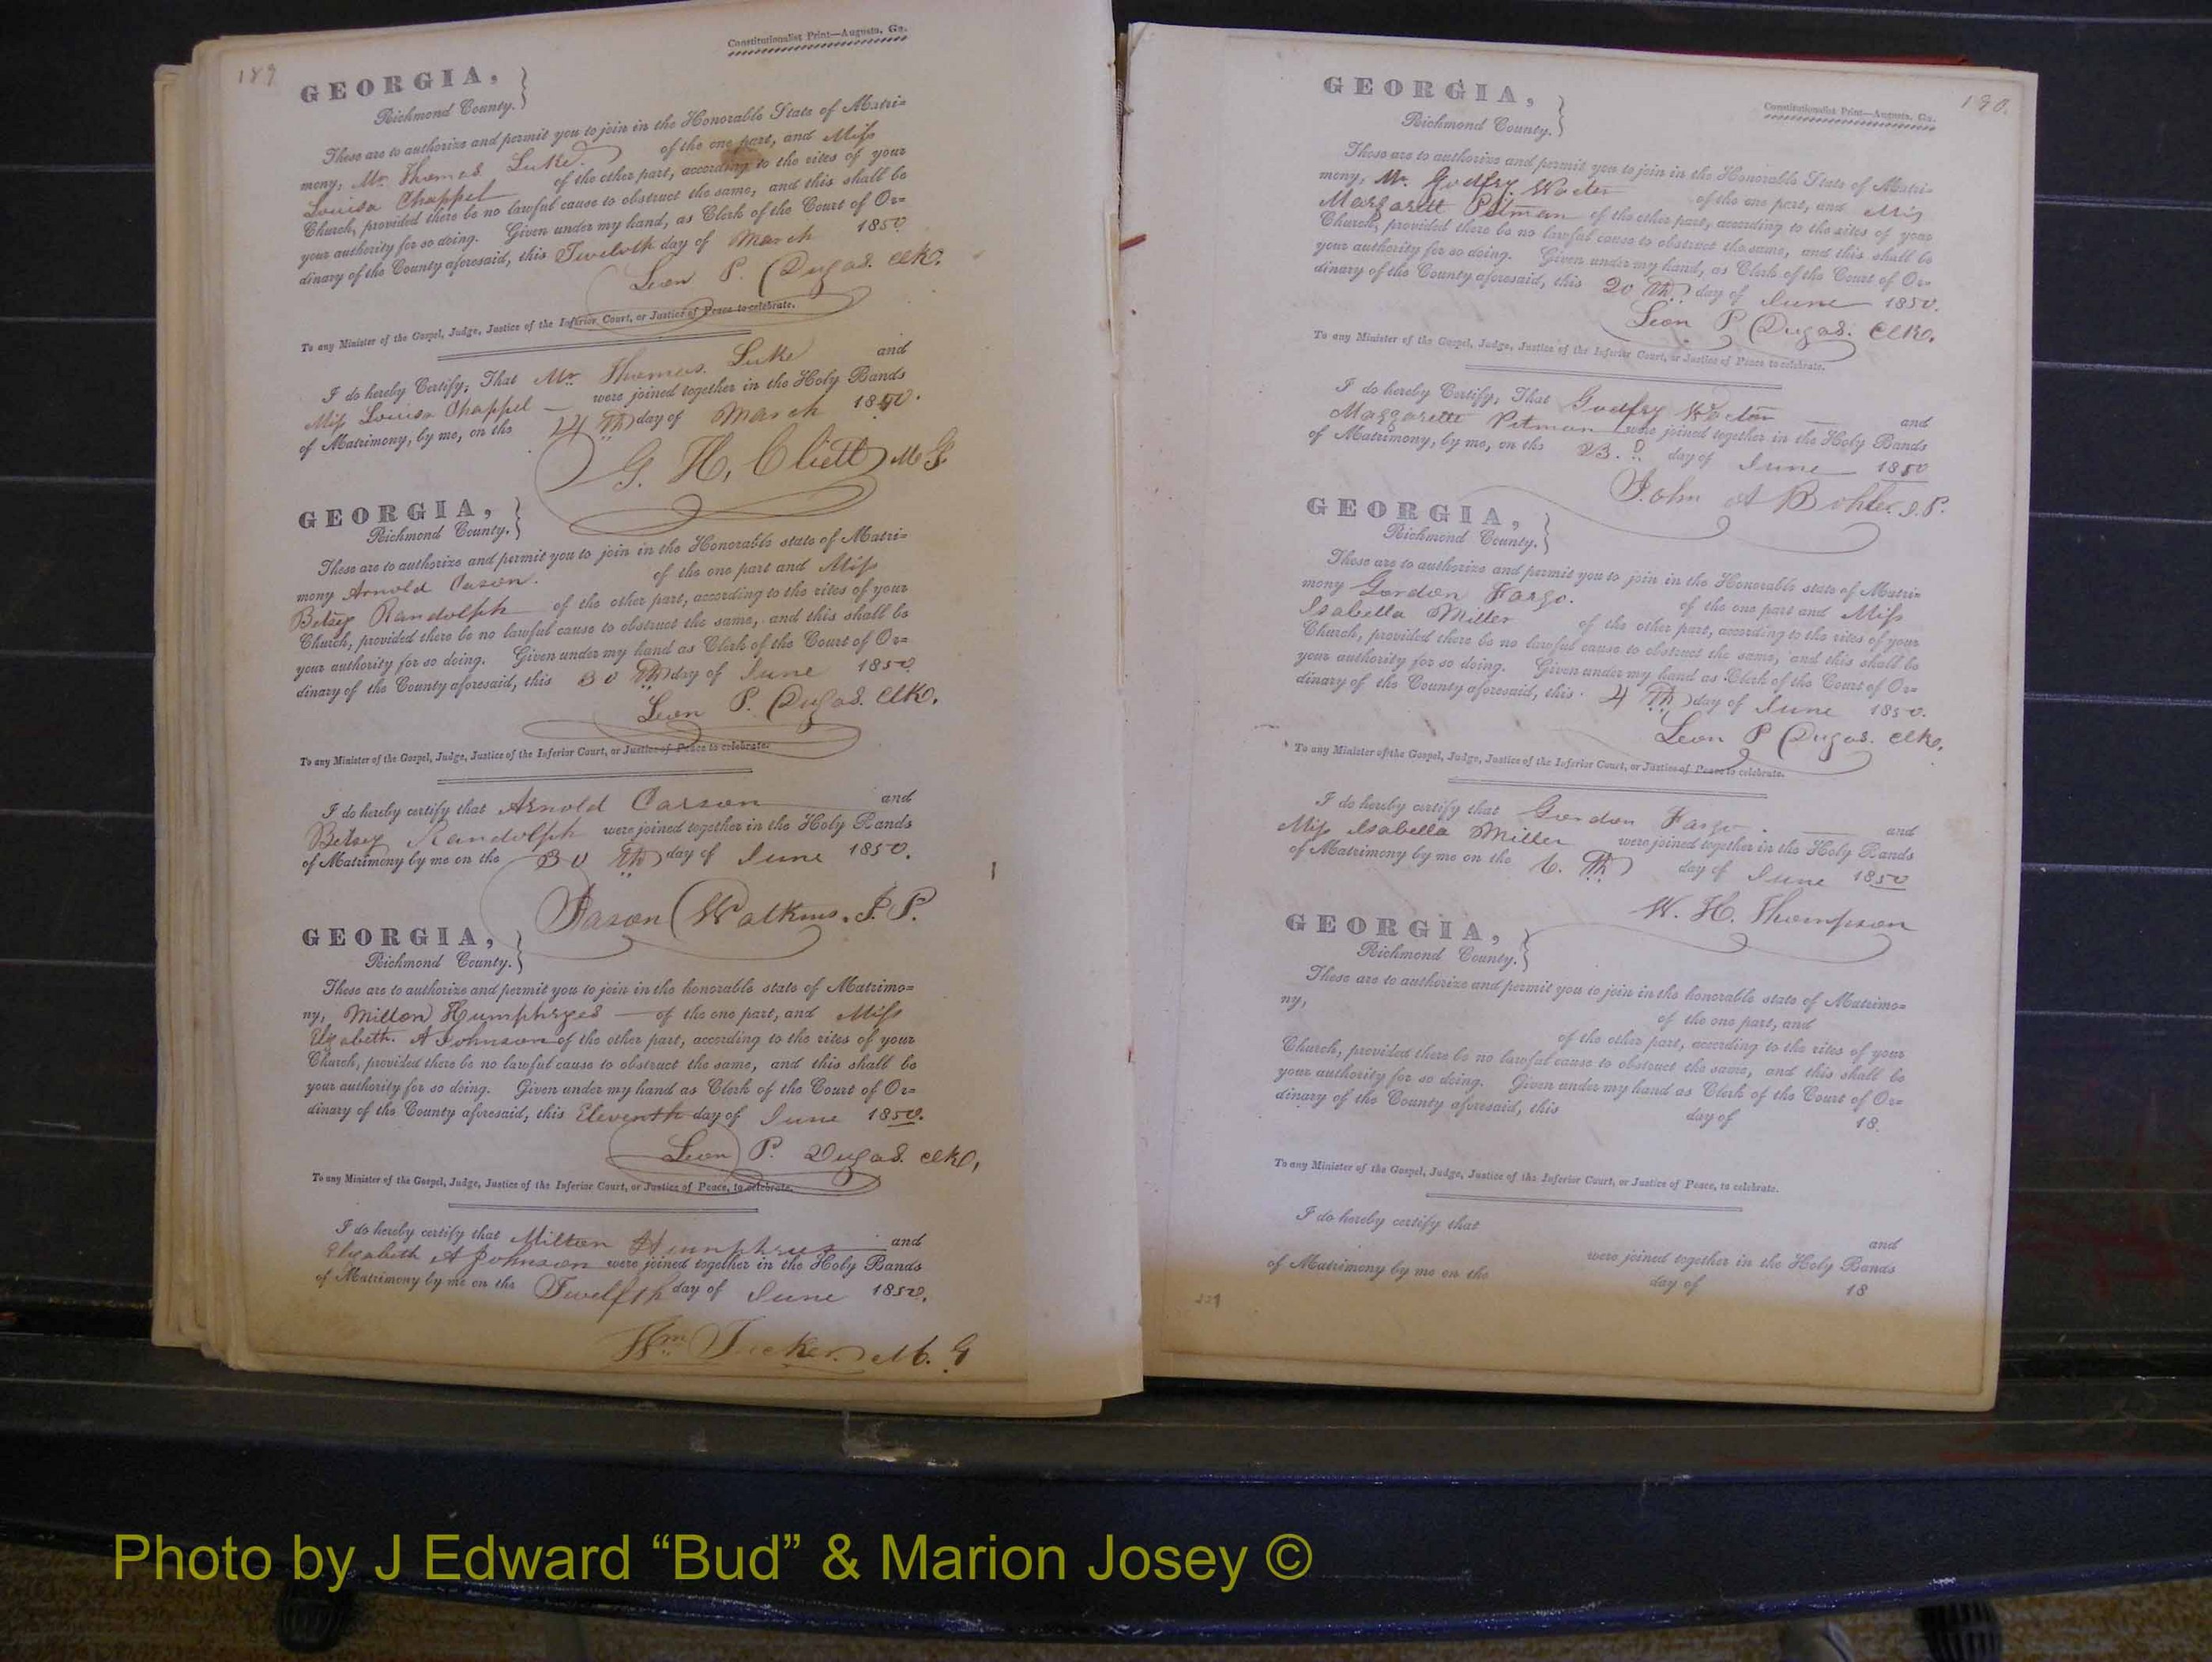 189
Constitutionalist Print—Augusta, Ga.
GEORGIA,
Richmond County.
These are to authorize and permit you to join in the Honorable State of Matri=
mony, Mr. Thomas Luke of the one part, and Miss
Louisa Chappel of the other part, according to the rites of your
Church, provided there be no lawful cause to obstruct the same, and this shall be
your authority for so doing. Given under my hand, as Clerk of the Court of Or=
dinary of the County aforesaid, this Twelvth day of March 1850
Leon P. Dugas. Clk.
To any Minister of the Gospel, Judge, Justice of the Inferior Court, or Justice of Peace to celebrate.
I do hereby Certify, That Mr. Thomas Luke and
Miss Louisa Chappel were joined together in the Holy Bands
of Matrimony, by me, on the 14 Th day of March 1850.
G. H. Cliett M G
GEORGIA,
Richmond County.
These are to authorize and permit you to join in the Honorable state of Matri=
mony Arnold Carson. of the one part and Miss
Betsey Randolph of the other part, according to the rites of your
Church, provided there be no lawful cause to obstruct the same, and this shall be
your authority for so doing. Given under my hand as Clerk of the Court of Or=
dinary of the County aforesaid, this 30 Th day of June 1850
Leon P. Dugas. Clk.
To any Minister of the Gospel, Judge, Justice of the Inferior Court, or Justice of Peace to celebrate.
I do hereby certify that Arnold Carson and
Betsey Randolph were joined together in the Holy Bands
of Matrimony by me on the 30 Th day of June 1850.
Jason Watkins. J. P.
GEORGIA,
Richmond County.
These are to authorize and permit you to join in the honorable state of Matrimo=
ny, Milton Humphryes of the one part, and Miss
Elizabeth. A Johnson of the other part, according to the rites of your
Church, provided there be no lawful cause to obstruct the same, and this shall be
your authority for so doing. Given under my hand as Clerk of the Court of Or=
dinary of the County aforesaid, this Eleventh day of June 1850.
Leon P. Dugas. Clk,
To any Minister of the Gospel, Judge, Justice of the Inferior Court, or Justice of Peace, to celebrate.
I do hereby certify that Milton and
Elizabeth A Johnson were joined together in the Holy Bands
of Matrimony by me on the Twelfth day of June 1850.
Wm Tucker M. G
190.
Constitutionalist Print—Augusta, Ga.
GEORGIA,
Richmond County.
These are to authorize and permit you to join in the Honorable State of Matri=
mony, Mr. Godfry of the one part, and Miss
Margarett Pitman of the other part, according to the rites of your
Church, provided there be no lawful cause to obstruct the same, and this shall be
your authority for so doing. Given under my hand, as Clerk of the Court of Or=
dinary of the County aforesaid, this 20 Th day of June 1850.
Leon P Dugas. Clk.
To any Minister of the Gospel, Judge, Justice of the Inferior Court, or Justice of Peace to celebrate.
I do hereby Certify, That Godfry and
Margarette Pitman were joined together in the Holy Bands
of Matrimony, by me, on the 23. day of June 1850
John A Bohler J. P.
GEORGIA,
Richmond County.
These are to authorize and permit you to join in the Honorable state of Matri=
mony Gordon Fargo. of the one part and Miss
Isabella Miller of the other part, according to the rites of your
Church, provided there be no lawful cause to obstruct the same, and this shall be
your authority for so doing. Given under my hand as Clerk of the Court of Or=
dinary of the County aforesaid, this 4 Th day of June 1850.
Leon P Dugas. Clk.
To any Minister of the Gospel, Judge, Justice of the Inferior Court, or Justice of Peace to celebrate.
I do hereby certify that Gordon Fargo. and
Miss Isabella Miller were joined together in the Holy Bands
of Matrimony by me on the 6. Th day of June 1850
W. H. Thompson
GEORGIA,
Richmond County.
These are to authorize and permit you to join in the honorable state of Matrimo=
ny, of the one part, and
of the other part, according to the rites of your
Church, provided there be no lawful cause to obstruct the same, and this shall be
your authority for so doing. Given under my hand as Clerk of the Court of Or=
dinary of the County aforesaid, this day of 18.
To any Minister of the Gospel, Judge, Justice of the Inferior Court, or Justice of Peace, to celebrate.
I do hereby certify that and
were joined together in the Holy Bands
of Matrimony by me on the day of 18
Photo by J Edward “Bud” & Marion Josey ©